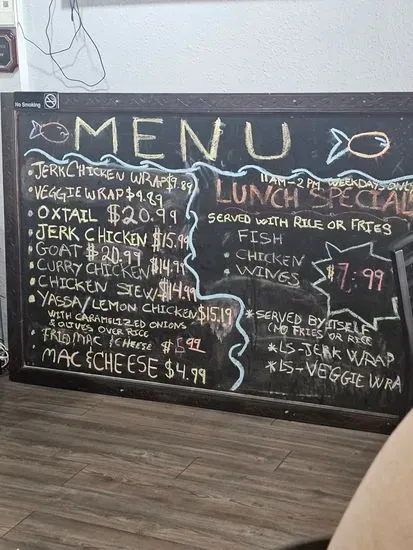 No Smoking
MENU
JERK CHICKEN WRAP $9.89
VEGGIE WRAP $9.89
OXTAIL $20.99
JERK CHICKEN $15.99
GOAT $20.99
CURRY CHICKEN $14.99
CHICKEN STEW $14.99
YASSA/LEMON CHICKEN $15.19
WITH CARAMELIZED ONIONS
& OLIVES OVER RICE
MAC & CHEESE $5.99
MAC & CHEESE $4.99
11AM-2PM WEEKDAYS ONLY
LUNCH SPECIAL
SERVED WITH RICE OR FRIES
FISH
CHICKEN
WINGS
$7.99
*SERVED BY ITSELF
(NO FRIES OR RICE
*LS-JERK WRAP
*LS-VEGGIE WRA